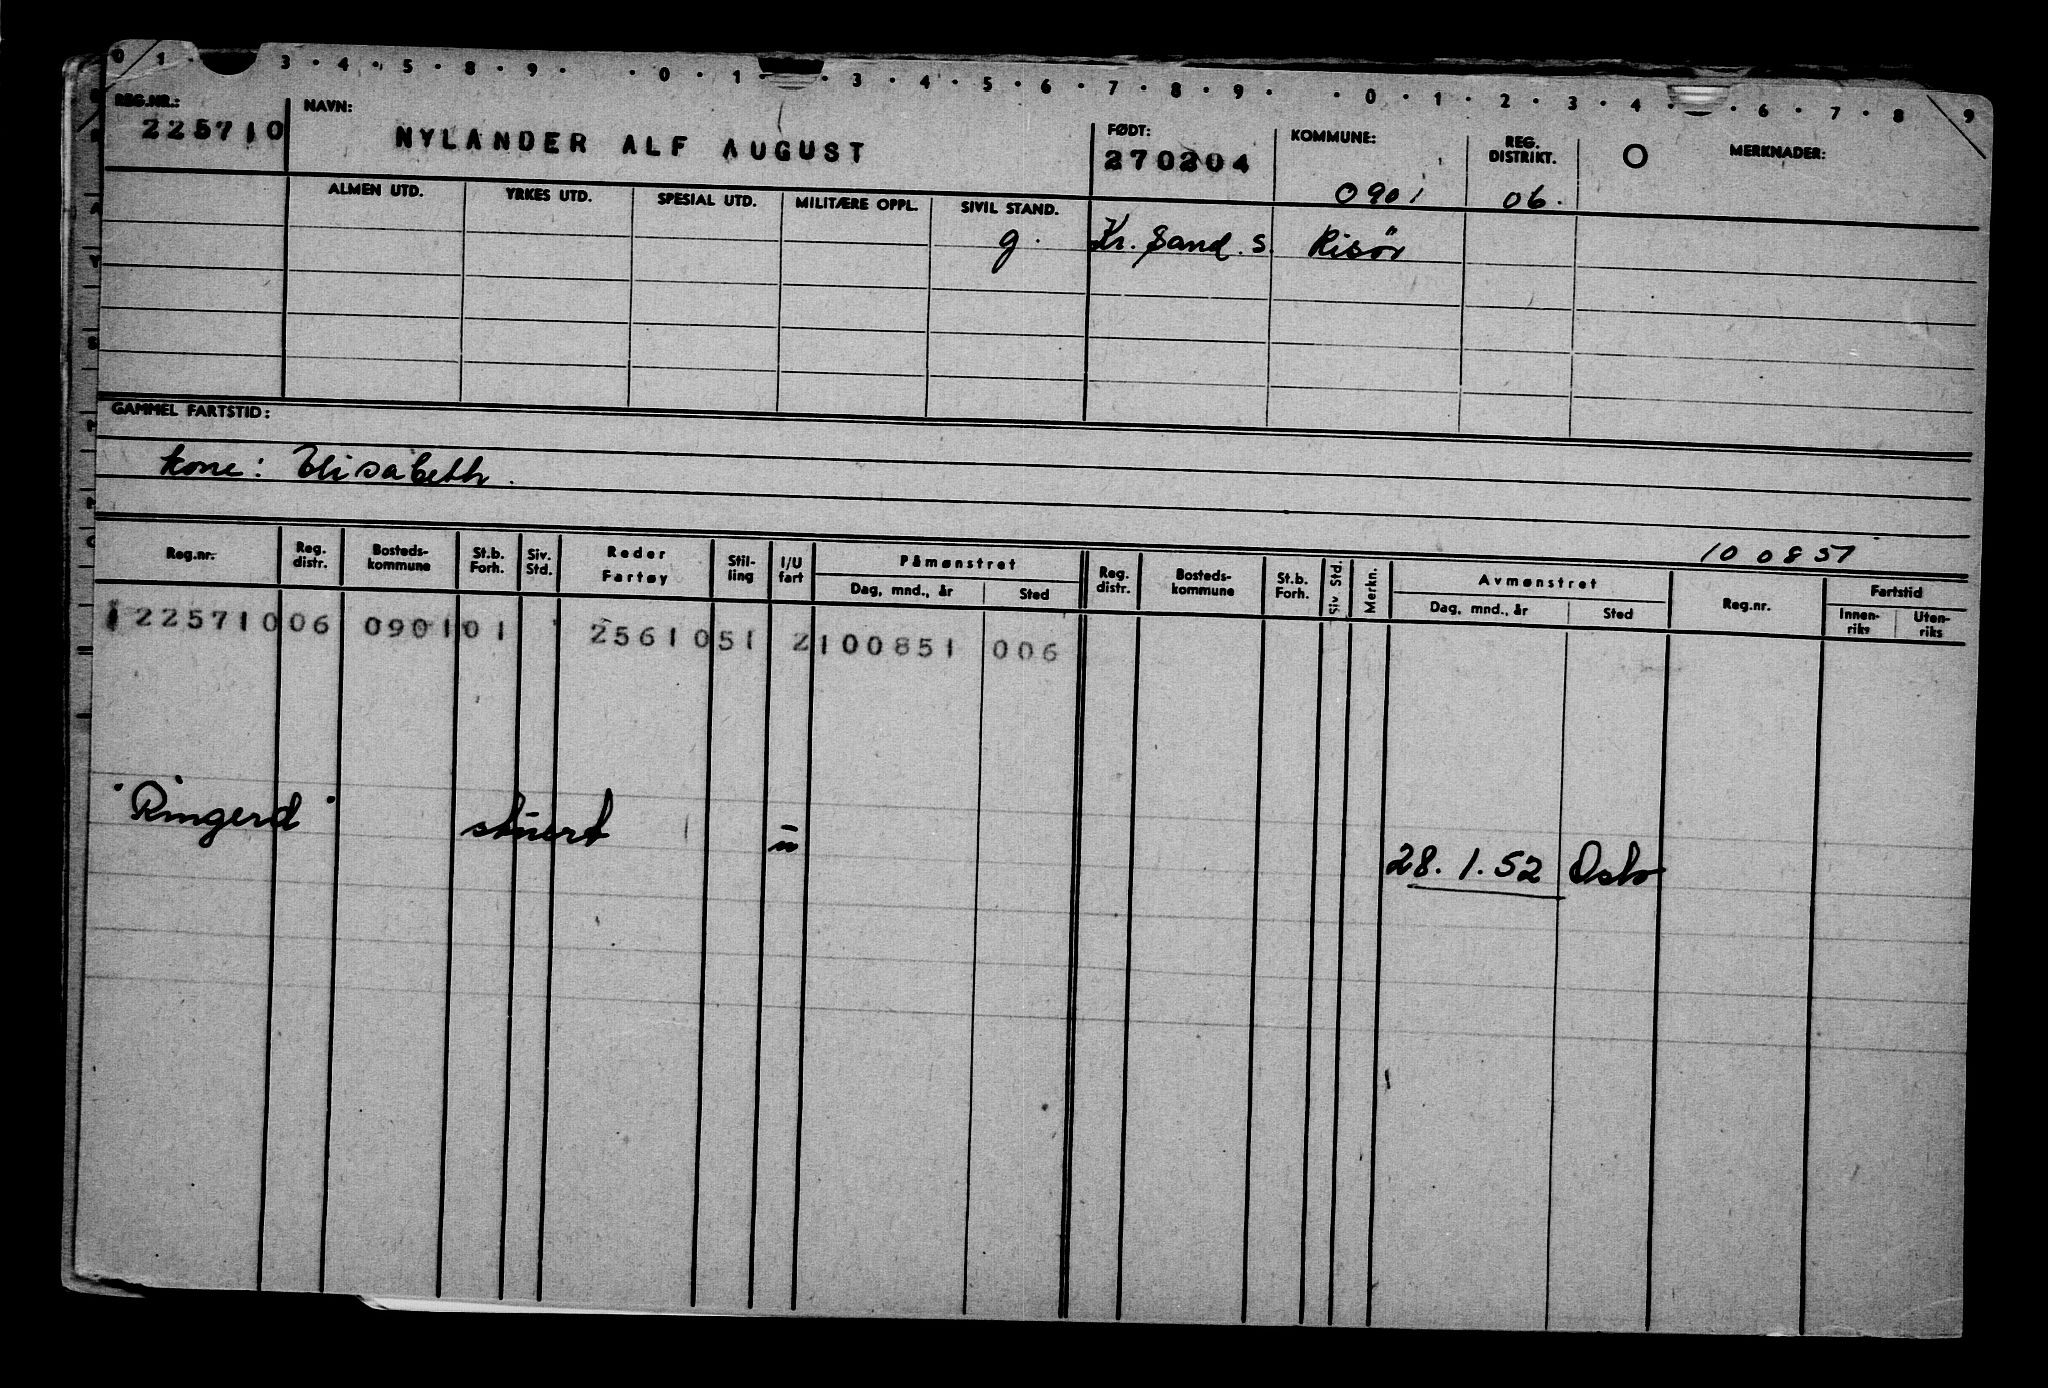 0 1 · 3 · 4 · 5 · 8 · 9 · · 0 · 1 · 3 · 4 · 5 · 6 · 7 · 8 · 9 · · 0 · 1 · 2 · 3 · 4 · 6 · 7 · 8 9
REG.NR.: NAVN: FØDT: KOMMUNE: REG. DISTRIKT. O MERKNADER:
225710 NYLANDER ALF AUGUST 270204 0901 06.
ALMEN UTD. YRKES UTD. SPESIAL UTD. MILITÆRE OPPL. SIVIL STAND.
g. Kr. Sand. S. Risör
GAMMEL FARTSTID:
kone: Elisabeth.
10 08 51
Reg.nr. Reg. distr. Bosteds-kommune St.b. Forh. Siv. Std. Reder Fartøy Stil-ling I/U fart Påmønstret Reg. distr. Bosteds-kommune St.b. Forh. Siv Std. Merkn. Avmønstret Reg.nr. Fartstid
Dag, mnd., år Sted Dag, mnd., år Sted Innen-riks Uten-riks
225710 06 0901 01 25610 51 2 100851 006
"Ringerd" stuert u
28.1.52 Oslo